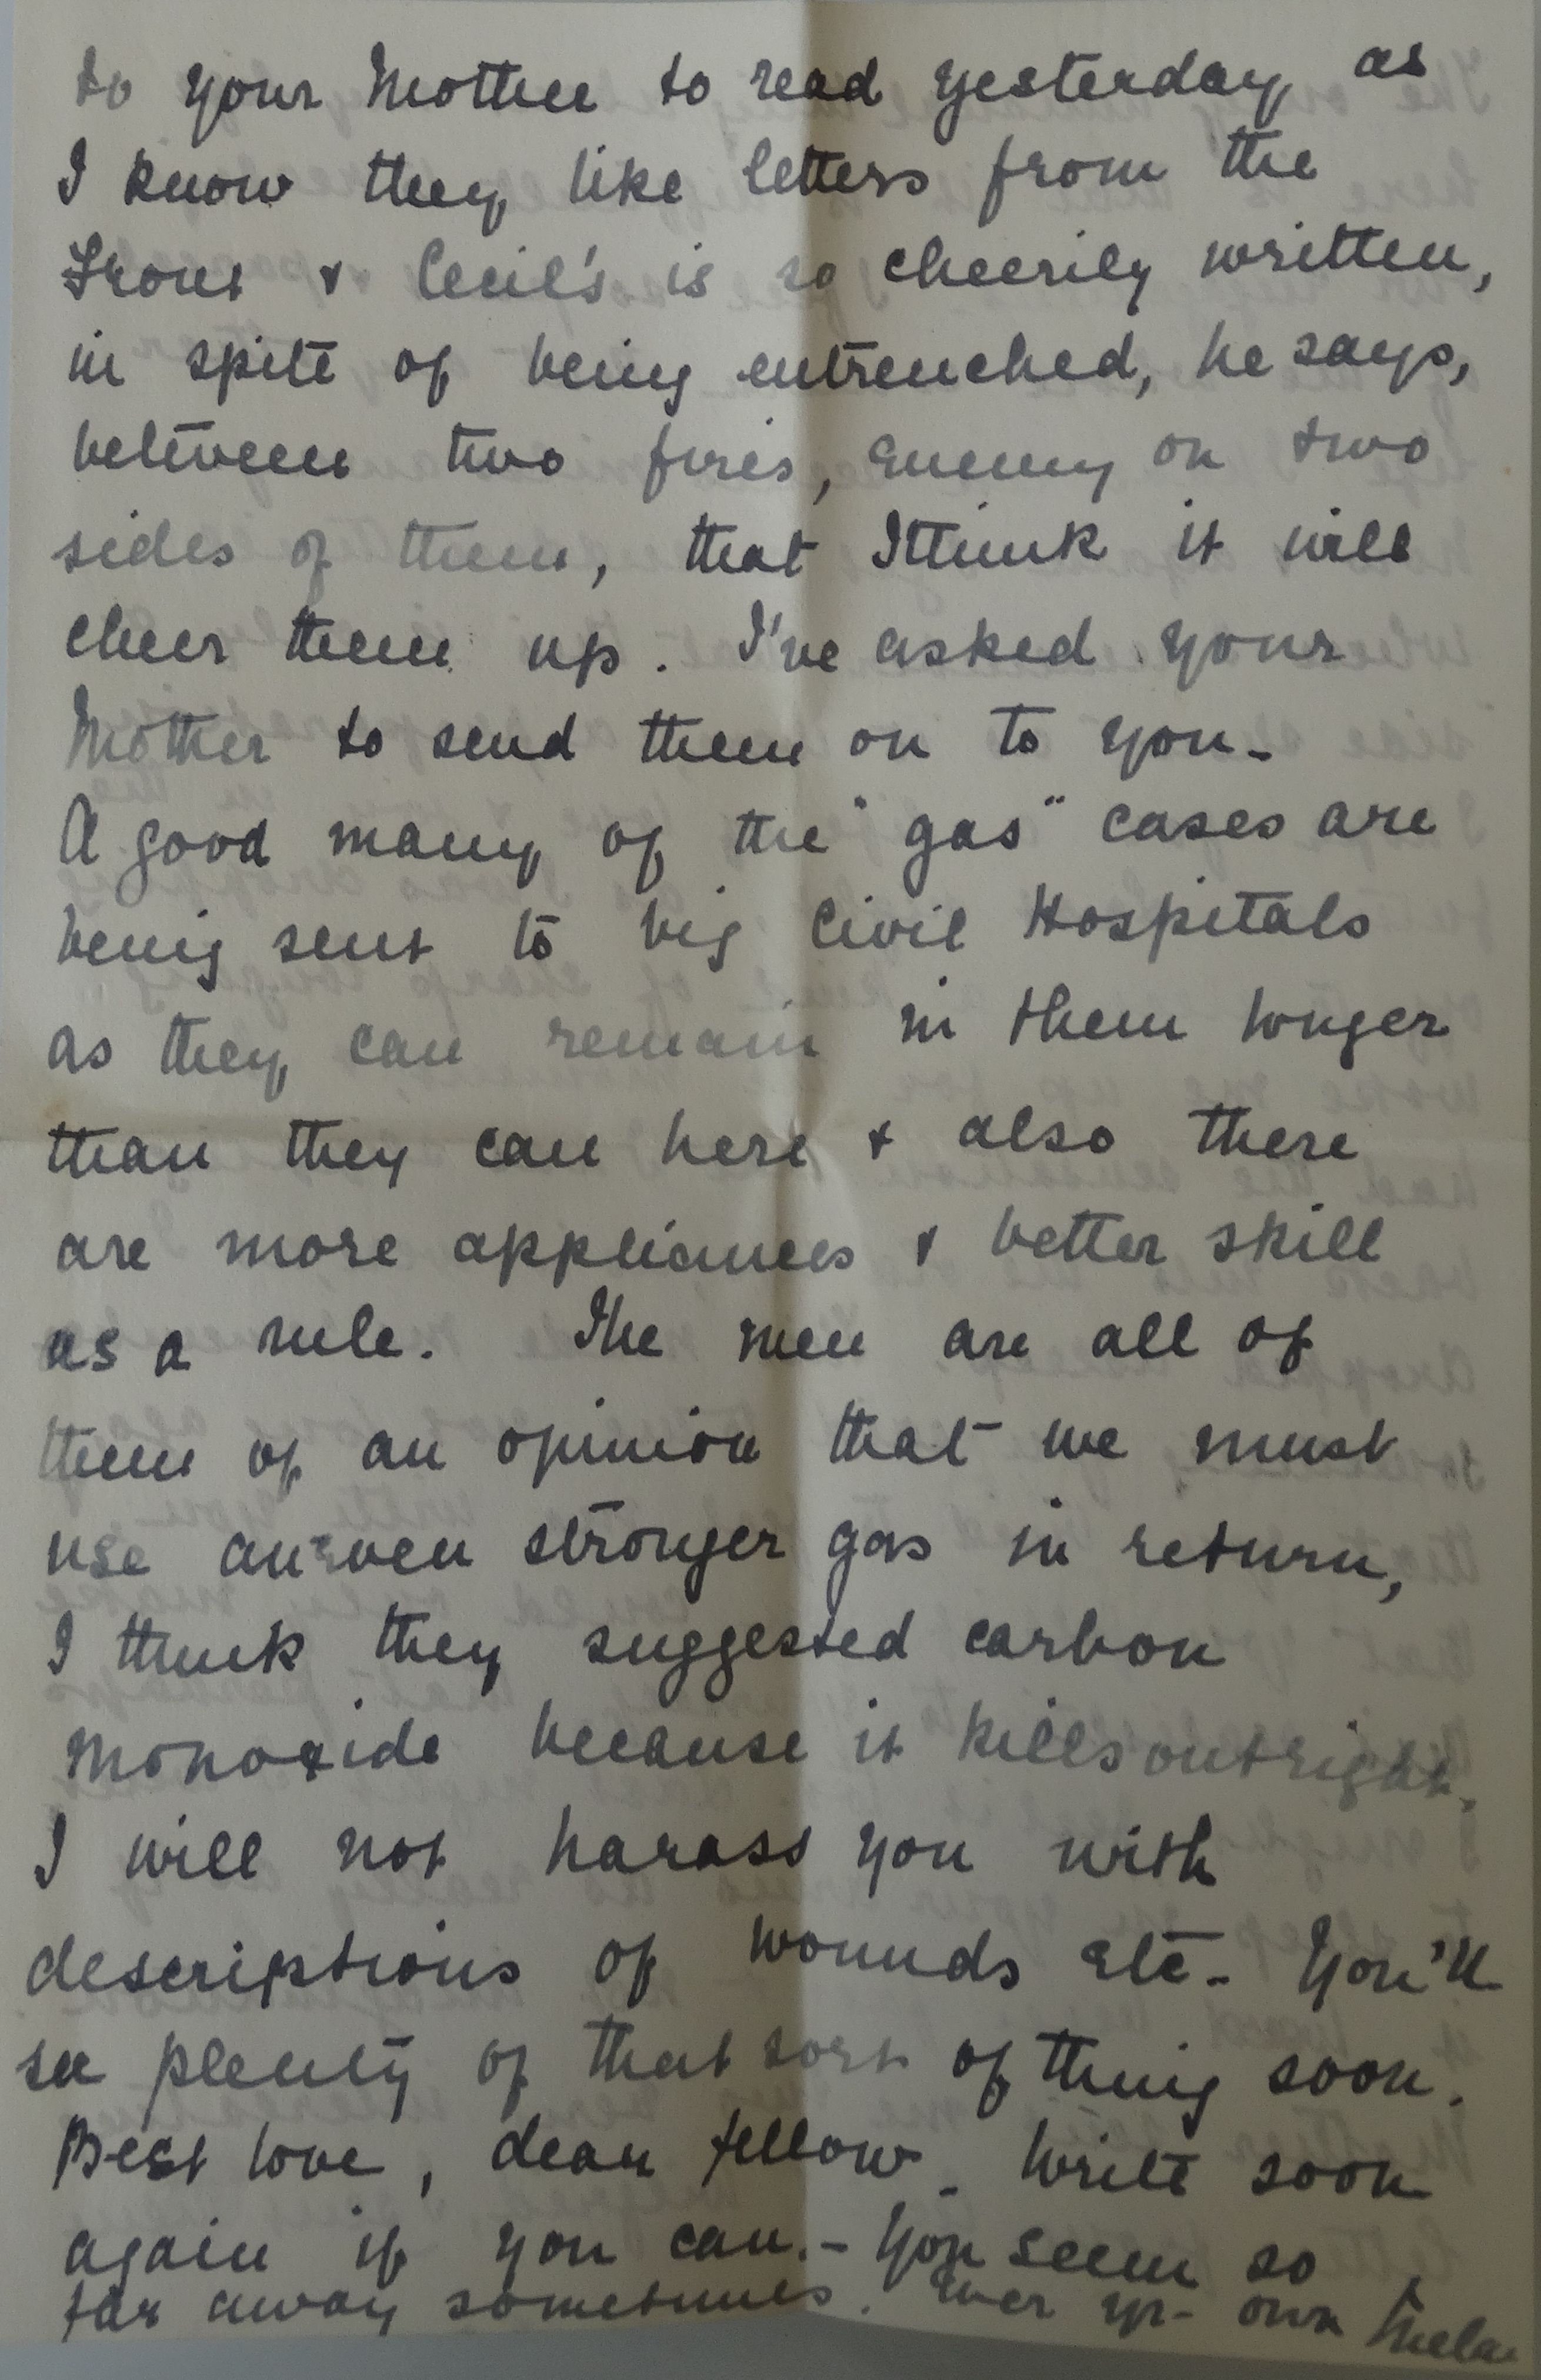 to your Mother to read yesterday, as
I know they like letters from the
Front & Cecil's is so cheerily written,
in spite of being entrenched, he says,
between two fires, enemy on two
sides of them, that I think it will
cheer them up. I've asked your
Mother to send them on to you -
A good many of the "gas" cases are
being sent to big Civil Hospitals
as they can remain in them longer
than they can here & also there
are more appliances & better skill
as a rule. The men are all of
them of an opinion that we must
use an even stronger gas in return,
I think they suggested carbon
monoxide because it kills outright.
I will not harass you with
descriptions of wounds etc - You'll
see plenty of that sort of thing soon.
Best love, dear fellow - Write soon
again if you can. - You seem so
far away sometimes. Ever yr - own